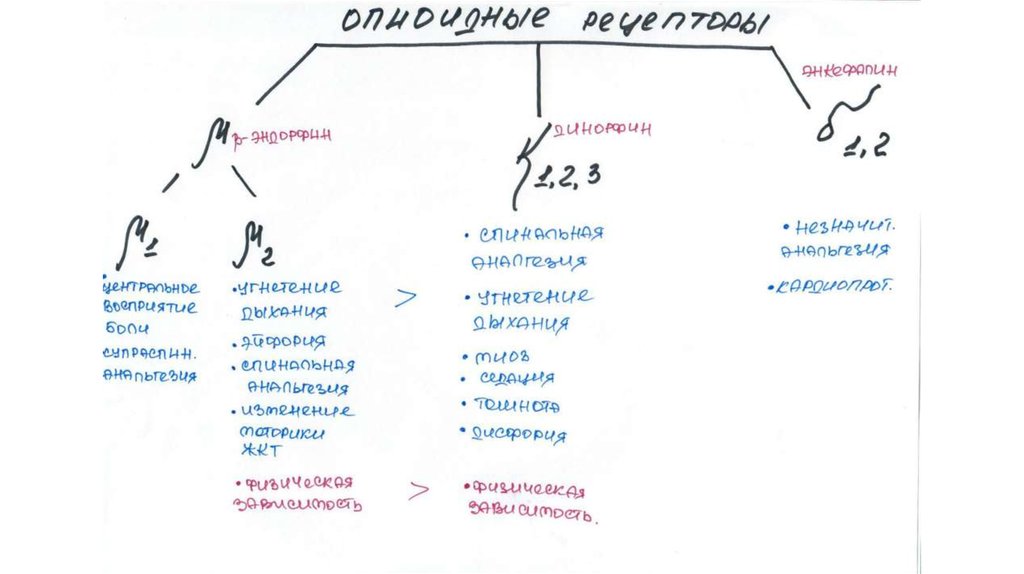 ОПИОИДНЫЕ РЕЦЕПТОРЫ
β-ЭНДОРФИН
ДИНОРФИН
ЭНКЕФАЛИН
μ
κ 1, 2, 3
δ 1, 2
μ1
μ2
• ЦЕНТРАЛЬНОЕ
ВОСПРИЯТИЕ
БОЛИ
СУПРАСПИН.
АНАЛЬГЕЗИЯ
• УГНЕТЕНИЕ
ДЫХАНИЯ
• ЭЙФОРИЯ
• СПИНАЛЬНАЯ
АНАЛЬГЕЗИЯ
• ИЗМЕНЕНИЕ
МОТОРИКИ
ЖКТ
• ФИЗИЧЕСКАЯ
ЗАВИСИМОСТЬ
>
>
• СПИНАЛЬНАЯ
АНАЛГЕЗИЯ
• УГНЕТЕНИЕ
ДЫХАНИЯ
• МИОЗ
• СЕДАЦИЯ
• ТОШНОТА
• ДИСФОРИЯ
• ФИЗИЧЕСКАЯ
ЗАВИСИМОСТЬ.
• НЕЗНАЧИТ.
АНАЛЬГЕЗИЯ
• КАРДИОПРОТ.